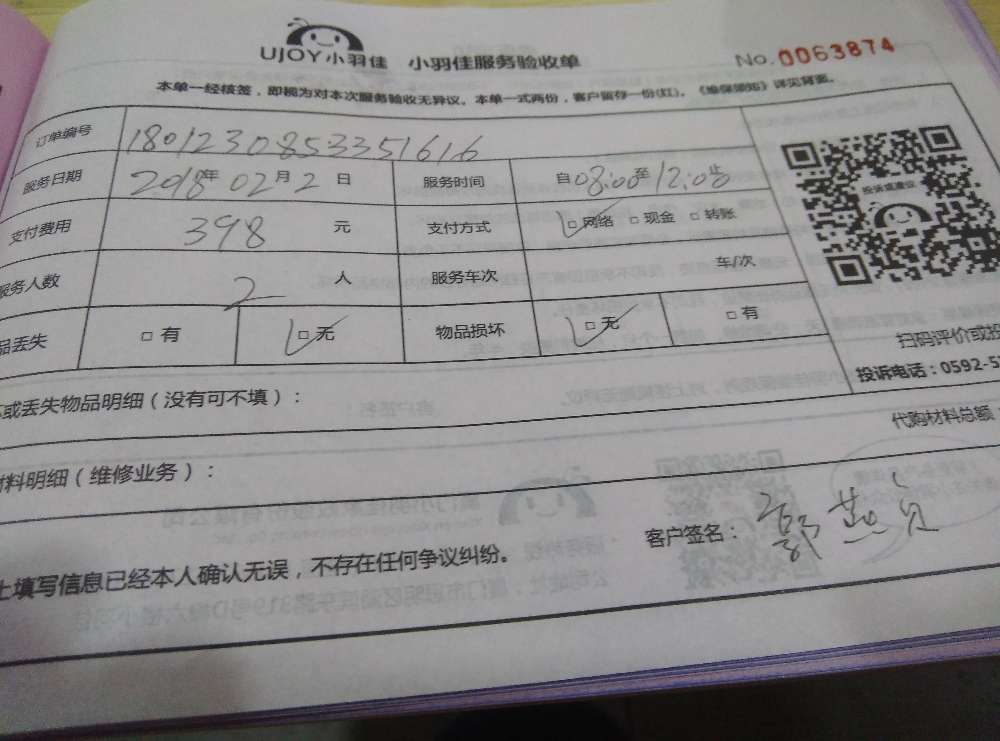 UJOY小羽佳 小羽佳服务验收单 No. 0063874
本单一经核签，即视为对本次服务验收无异议。本单一式两份，客户留存一份(红)。《维保须知》详见背面。
订单编号 1801230853351616
服务日期 2018年02月2日 服务时间 自08:00至12:00止
支付费用 398 元 支付方式 □网络 □现金 □转账
服务人数 2 人 服务车次 车/次
品丢失 □有 □无 物品损坏 □无 □有
投诉或建议
扫码评价或投
投诉电话：0592-5
或丢失物品明细（没有可不填）：
代购材料总额
材料明细（维修业务）：
客户签名：
上填写信息已经本人确认无误，不存在任何争议纠纷。